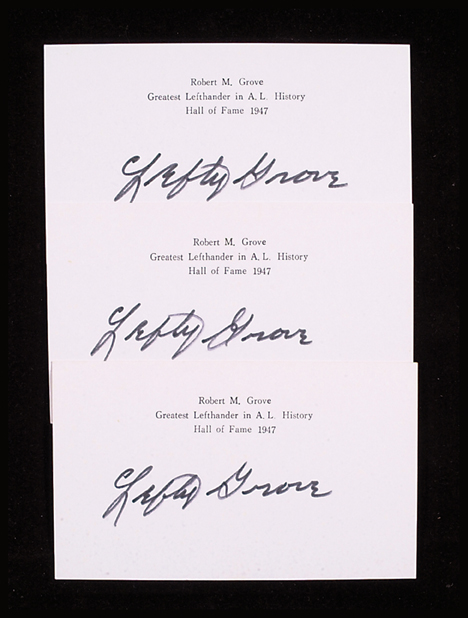 Robert M. Grove
Greatest Lefthander in A. L. History
Hall of Fame 1947
Lefty Grove
Robert M. Grove
Greatest Lefthander in A. L. History
Hall of Fame 1947
Lefty Grove
Robert M. Grove
Greatest Lefthander in A. L. History
Hall of Fame 1947
Lefty Grove